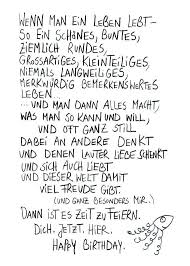 WENN MAN EIN LEBEN LEBT–
SO EIN SCHÖNES, BUNTES,
ZIEMLICH RUNDES,
GROSSARTIGES, KLEINTEILIGES,
NIEMALS LANGWEILIGES,
MERKWÜRDIG BEMERKENSWERTES
LEBEN....
...UND MAN DANN ALLES MACHT,
WAS MAN SO KANN UND WILL,
UND OFT GANZ STILL
DABEI AN ANDERE DENKT
UND DENEN LAUTER LIEBE SCHENKT
UND SICH AUCH LIEBT
UND DIESER WELT DAMIT
VIEL FREUDE GIBT.
(UND GANZ BESONDERS MIR..)
DANN IST ES ZEIT ZU FEIERN.
DICH. JETZT. HIER.
HAPPY BIRTHDAY.